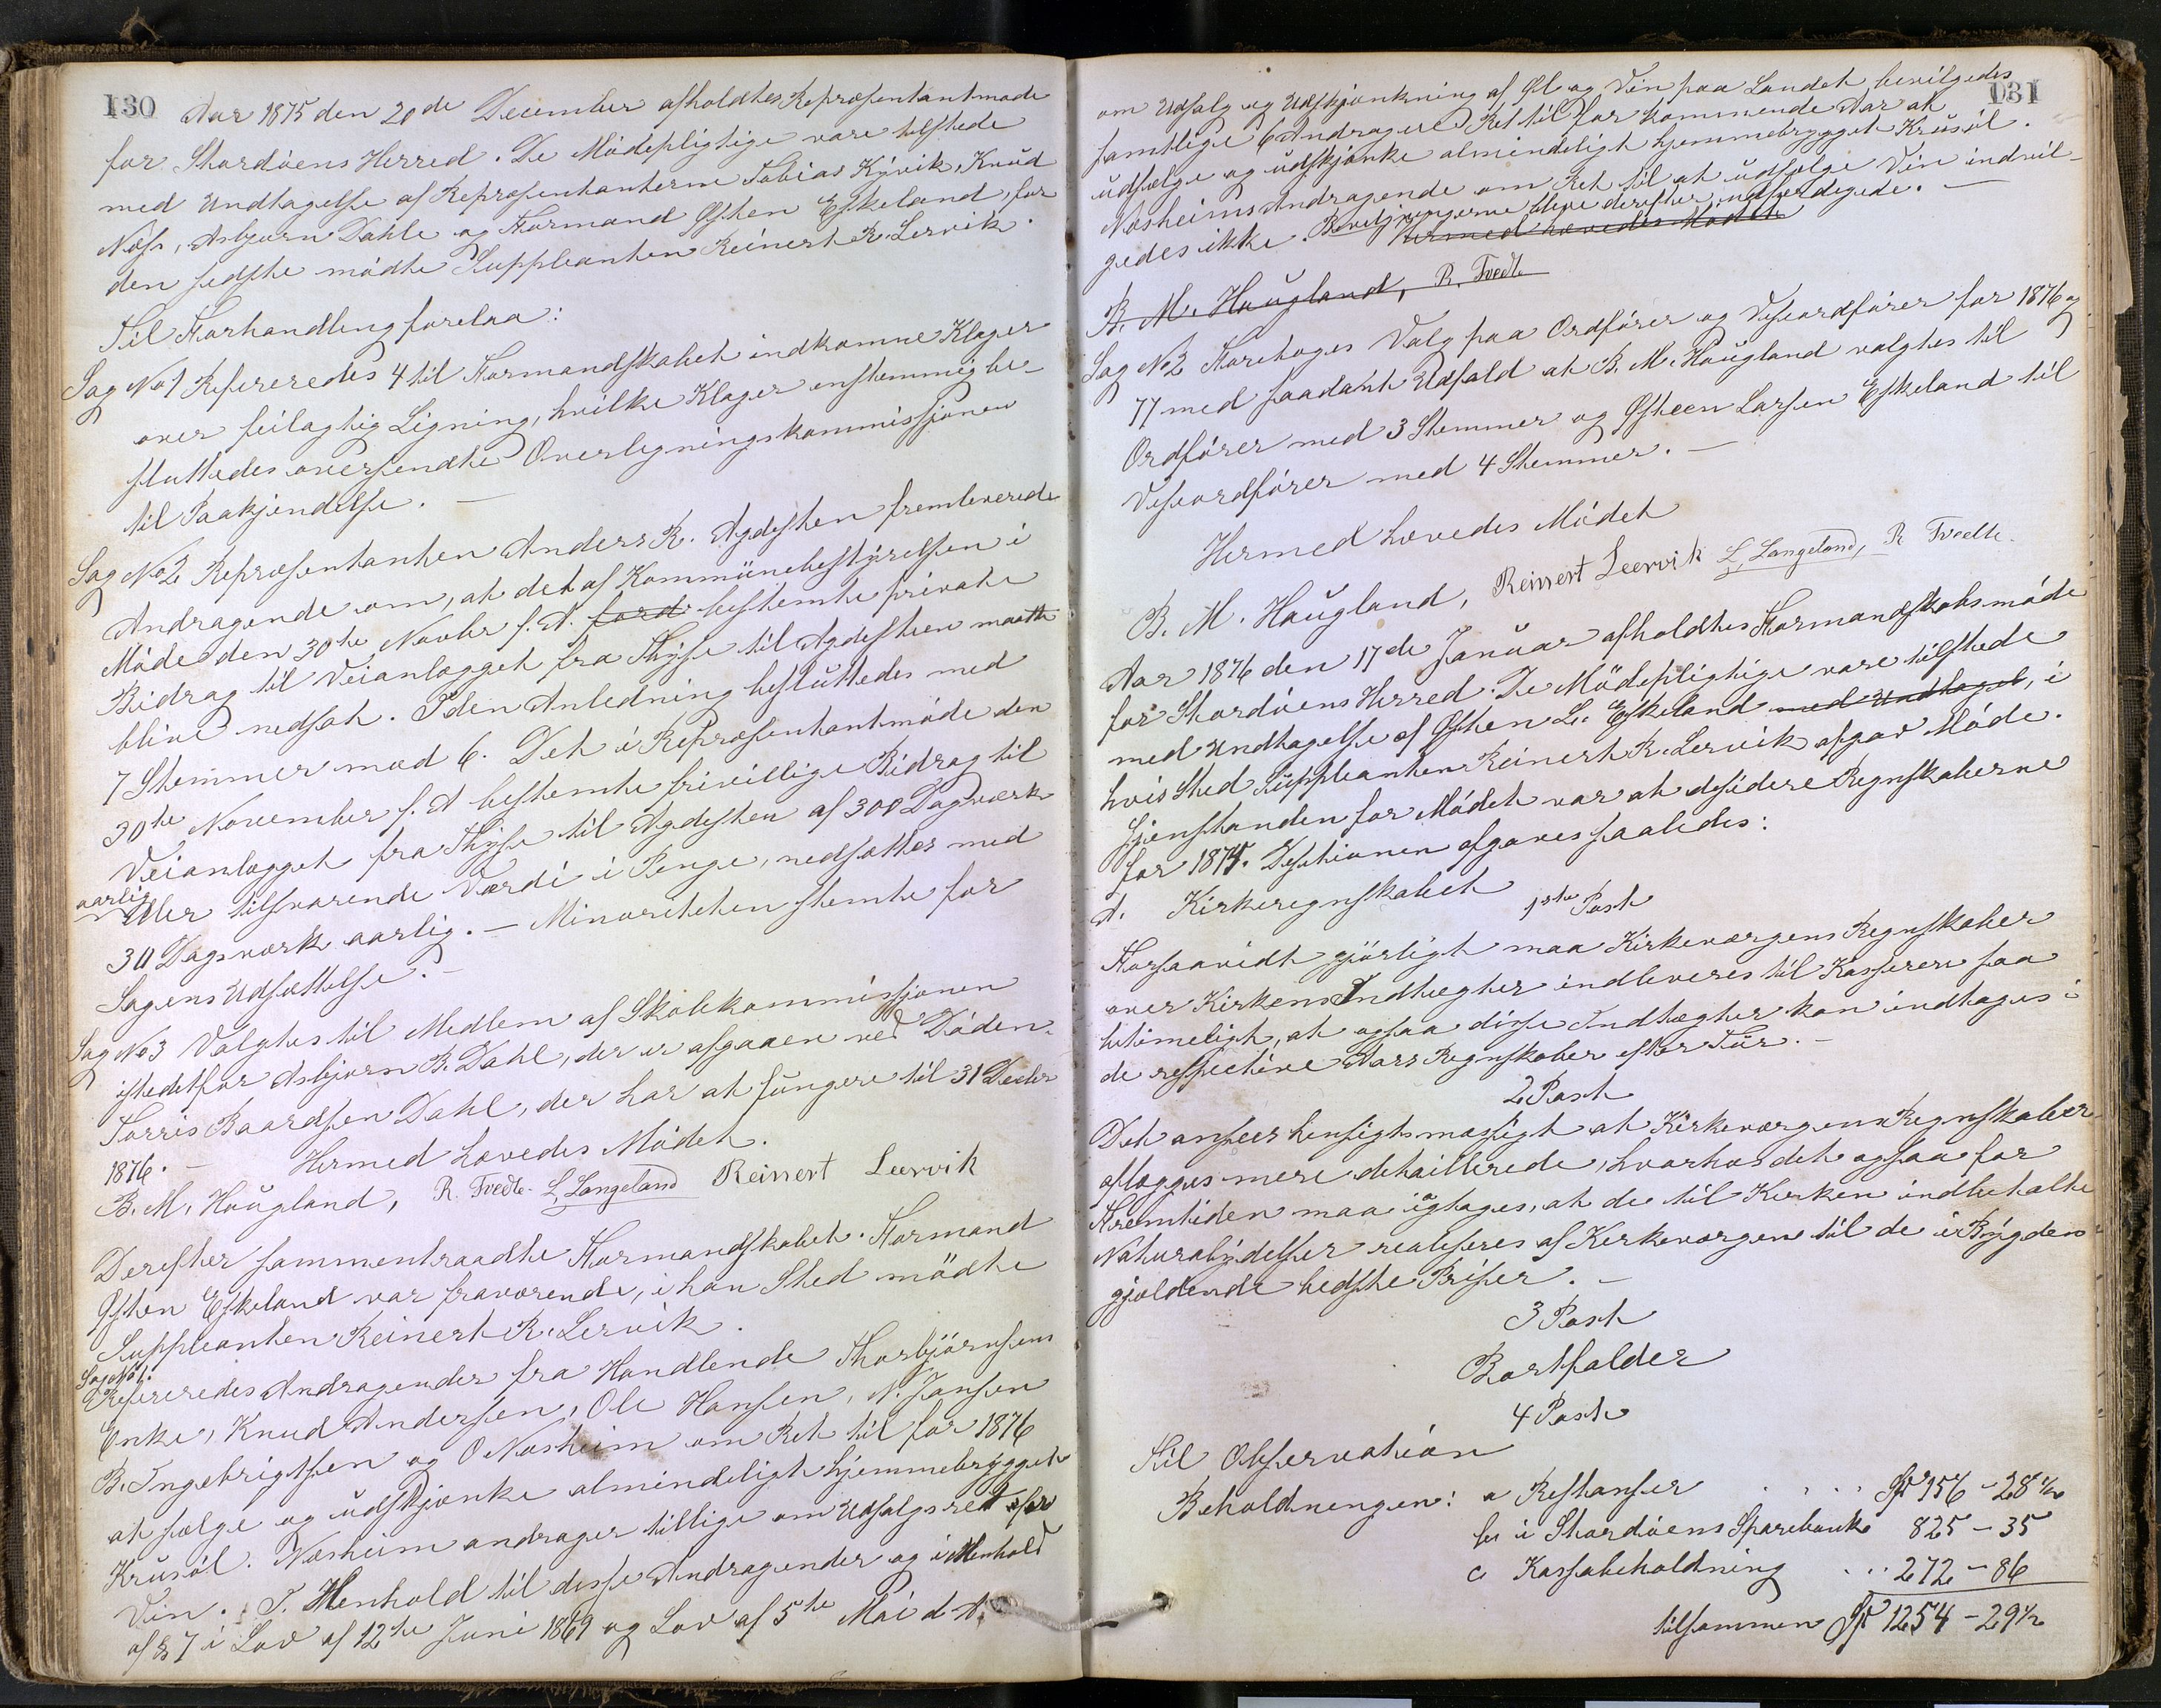 130
Aar 1875 den 20de December afholdtes Repræsentantmøde
for Stordøens Herred. De Mødepligtige vare tilstede
med Undtagelse af Repræsentanterne Tobias Kyvik, Knud
Næss, Asbjørn Dahle og Formand Østen Eskeland, for
den sidste mødte Suppleanten Reinert R. Lervik.
Til Forhandling forelaa:
Sag No 1 Refereredes 4 til Formandskabet indkomne Klager
over feilagtig Ligning, hvilke Klager enstemmig be-
sluttedes oversendte Overligningskommissjonen
til Paakjendelse. —
Sag No 2 Repræsentanten Anders R. Agdesten fremleverede
Andragende om, at det af Kommunebestyrelsen i
Møde den 30te Novbr f. A. ford bestemte private
Bidrag til Veianlægget fra Thyse til Agdesteen maatte
blive nedsat. I den Anledning besluttedes med
7 Stemmer mod 6. Det i Repræsentantmøde den
30te November f. A bestemte frivillige Bidrag til
Veianlægget fra Thyse til Agdesten af 300 Dagsværk
aarlig
eller tilsvarende Værdi i Penge, nedsattes med
30 Dagsværk aarlig. — Minoriteten stemte for
Sagens Udsættelse. —
Sag No 3 Valgtes til Medlem af Skolekommissjonen
istedetfor Asbjørn B. Dahl, der er afgaaen ved Døden
Torris Baardsen Dahl, der har at fungere til 31 Decbr
1876. — Hermed hævedes Mødet.
B. M. Haugland, R. Tvedte. L. Langeland Reinert Leervik
Derefter sammentraadte Formandskabet. Formand
Østen Eskeland var fraværende, i han Sted mødte
Suppleanten Reinert R. Lervik.
Sag No 1.
Refereredes Andragender fra Handlende Thorbjørnsens
Enke, Knud Andersen, Ole Hansen, N. Jansen
B. Ingebrigtsen og O Næsheim om Ret til for 1876
at sælge og udskjænke almindeligt hjemmebrygget
Krusøl. Næsheim andrager tillige om Udsalgsret for
Vin. I. Henhold til disse Andragender og i Henhold
af § 7 i Lov af 12te Juni 1869 og Lov af 5te Mai d. A.
131
om Udsalg og Udskjænkning af Øl og Vin paa Landet bevilgedes
samtlige 6 Andragere Ret til for kommende Aar at
udsælge og udskjænke almindeligt hjemmebrygget Krusøl.
Næsheims Andragende om Ret til at udsælge Vin indvil-
gedes ikke. Bevilgningerne bleve derefter udfærdigede. —
Hermed hævedes Mødet
B. M. Haugland, R. Tvedte
Sag No 2 Foretoges Valg paa Ordfører og Viseordfører for 1876 og
77 med saadant Udfald at B. M. Haugland valgtes til
Ordfører med 3 Stemmer og Østeen Larsen Eskeland til
Viseordfører med 4 Stemmer. —
Hermed hævedes Mødet
B. M. Haugland, Reinert Leervik L. Langeland, R Tvedte.
Aar 1876 den 17de Januar afholdtes Formandskabsmøde
for Stordøens Herred. De Mødepligtige vare tilstede
med Undtagelse af Østen L. Eskeland med Undtagel, i
hvis Sted Suppleanten Reinert R. Lervik afgav Møde.
Gjenstanden for Mødet var at desidere Regnskaberne
for 1874. Desitionen afgaves saaledes:
A. Kirkeregnskabet
1ste Post
Forsaavidt gjørligt maa Kirkeværgens Regnskaber
over Kirkens Indtægter indleveres til Kassereren saa
betimeligt, at ogsaa disse Indtægter kan indtages i
de respective Aars Regnskaber efter Tur. —
2 Post
Det ansees hensigtsmæssigt at Kirkeværgens Regnskaber
aflægges mere detaillerede, hvorhos det ogsaa for
Fremtiden maa iagtages, at de til Kirken indbetalte
Naturalydelser realiseres af Kirkeværgen til de i Bygden
gjældende bedste Priser. —
3 Post
Bortfalder
4 Post
Til Observation
Beholdningen: a Restanser . . . . Spd 156 - 28 1/2
b i Stordøens Sparebank 825 - 35
c Kassabeholdning . . . 272 - 86
tilsammen Spd 1254 - 29 1/2